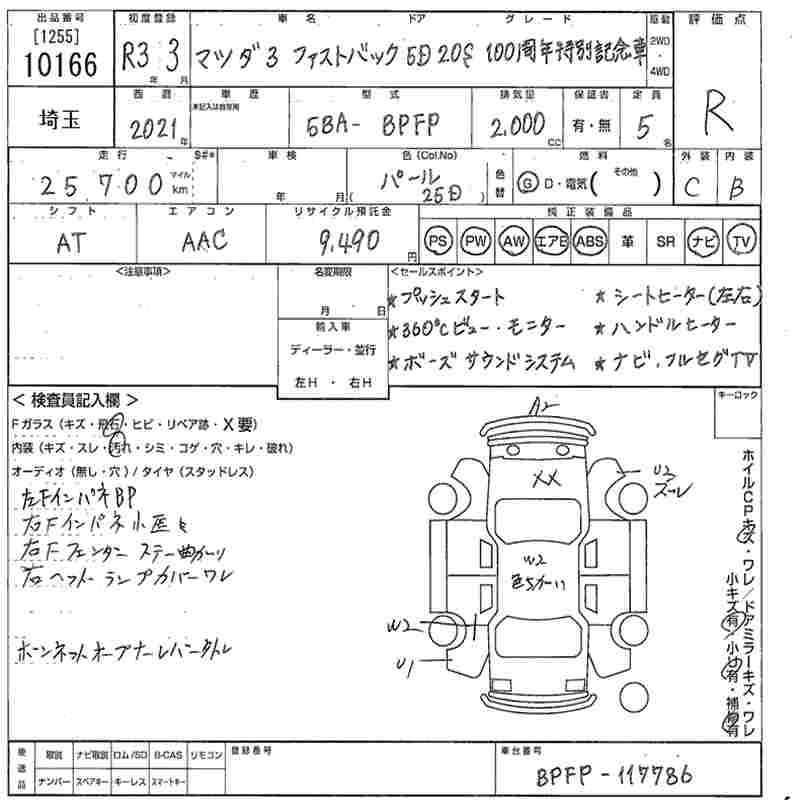 出品番号 初度登録 車名 ドア グレード 駆動 評価点
[1255]
10166 R3年 3月 マツダ3 ファストバック 5D 20S 100周年特別記念車 2WD・4WD R
埼玉 西暦 車歴 型式 排気量 保証書 定員
未記入は自家用
2021年 5BA- BPFP 2,000cc 有・無 5名
走行 S#* 車検 色(Col.No) 燃料 外装 内装
25,700 マイル km 年 月 パール (25D) 色替 G D・電気 (その他) C B
シフト エアコン リサイクル預託金 純正装備品
AT AAC 9,490円 PS PW AW エアB ABS 革 SR ナビ TV
<注意事項> 名変期限 <セールスポイント>
月 日
★プッシュスタート ★シートヒーター(左右)
★360°Cビュー・モニター ★ハンドルヒーター
★ボーズサウンドシステム ★ナビ,フルセグTV
輸入車
ディーラー・並行
左H・右H
<検査員記入欄> キーロック
Fガラス(キズ・飛石・ヒビ・リペア跡・X要)
内装(キズ・スレ・汚れ・シミ・コゲ・穴・キレ・破れ)
オーディオ(無し・穴)/タイヤ(スタッドレス)
左FインパネBP
右Fインパネ小
右Fフェンダーステー曲がり
右ヘットランプカバーワレ
ホーンネットオープナーレバー
A2
XX
U2
ズレ
W2
色ちがい
W2
U1
ホイルCPキズ・ワレ/ドアミラーキズ・ワレ
小キズ有/小U有・補修有
後送品 取説 ナビ取説 ロム/SD B-CAS リモコン 登録番号 車台番号
ナンバー スペアキー キーレス スマートキー
BPFP-117786